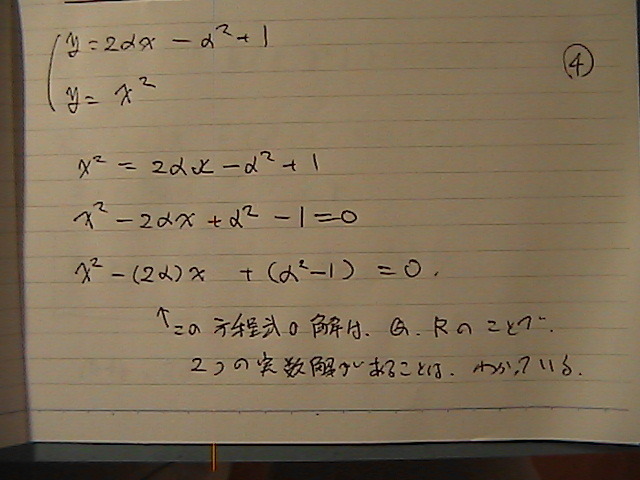 y = 2αx − α² + 1
④
y = x²
x² = 2αx − α² + 1
x² − 2αx + α² − 1 = 0
x² − (2α)x + (α² − 1) = 0.
↑この方程式の解は、Q、Rのことで、
2つの実数解があることは、わかっている。